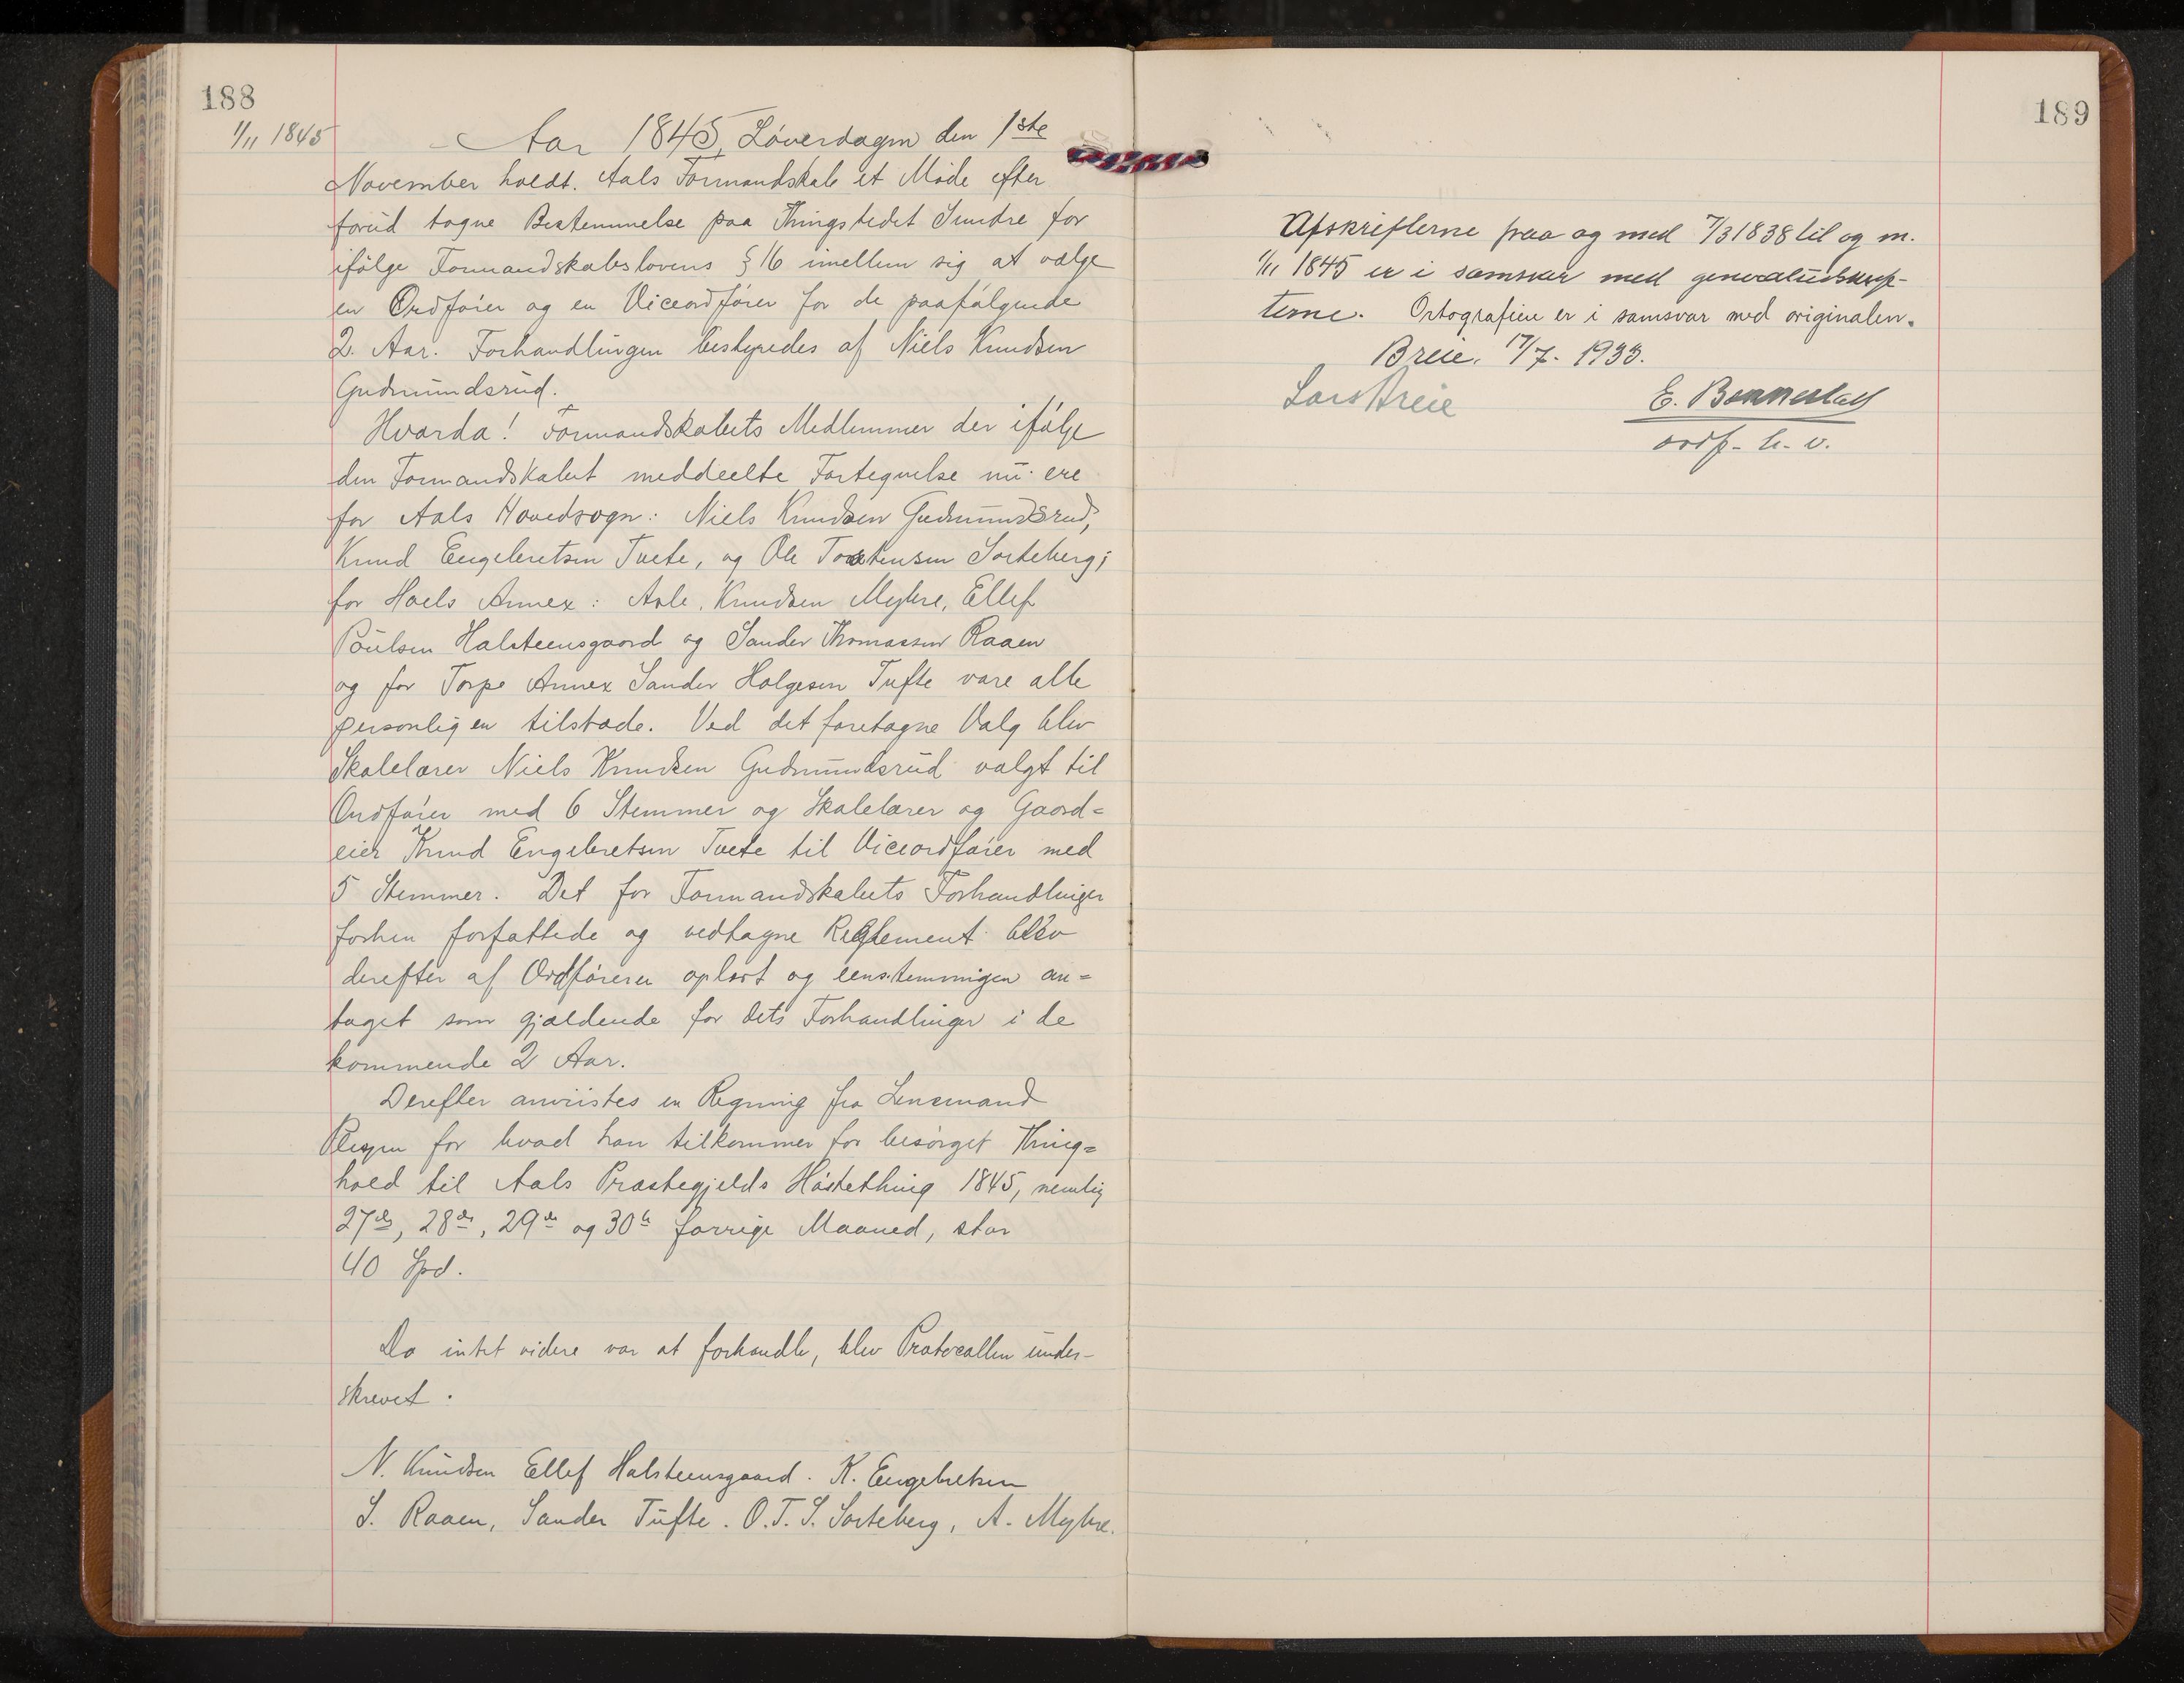 188
1/11 1845
Aar 1845, Löverdagen den 1ste
November holdt Aals Formandskab et Möde efter
forud tagne Bestemmelse paa Thingstedet Sundre for
ifölge Formandskabslovens § 16 imellem sig at vælge
en Ordförer og en Viceordförer for de paafölgende
2 Aar. Forhandlingen bestyredes af Niels Knudsen
Gudmundsrud.
Hvorda! Formandskabets Medlemmer der ifölge
den Formandskabet meddeelte Fortegnelse nu ere
for Aals Hovedsogn: Niels Knudsen Gudmundsrud,
Knud Engebretsen Tvete, og Ole Torstensen Sorteberg;
for Hoels Annex: Asle Knudsen Myhre, Ellef
Poulsen Halsteensgaard og Sander Thomassen Raaen
og for Torpe Annex Sander Holgesen Tufte vare alle
personligen tilstæde. Ved det foretagne Valg blev
Skolelærer Niels Knudsen Gudmundsrud valgt til
Ordförer med 6 Stemmer og Skolelærer og Gaard=
eier Knud Engebretsen Tvete til Viceordförer med
5 Stemmer. Det for Formandskabets Forhandlinger
forhen forfattede og vedtagne Reglement blev
derefter af Ordföreren oplæst og eenstemmigen an=
taget som gjældende for dets Forhandlinger i de
kommende 2 Aar.
Derefter anviistes en Regning fra Lensmand
for hvad han tilkommer for besörget Thing=
hold til Aals Præstegjelds Höstething 1845, nemlig
27de, 28de, 29de og 30te forrige Maaned, stor
40 Spd.
Da intet videre var at forhandle, blev Protocollen under-
skrevet.
N. Knudsen Ellef Halsteensgaard. K. Engebretsen
S. Raaen, Sander Tufte. O.T.S. Sorteberg, A. Myhre.
189
Afskrifterne fraa og med 7/3 1838 til og m.
1/11 1845 er i samsvar med generalutskrif-
terne. Ortografien er i samsvar med originalen.
Breie, 17/7- 1933.
Lars Breie
E. Bennestad
ordf. h. v.